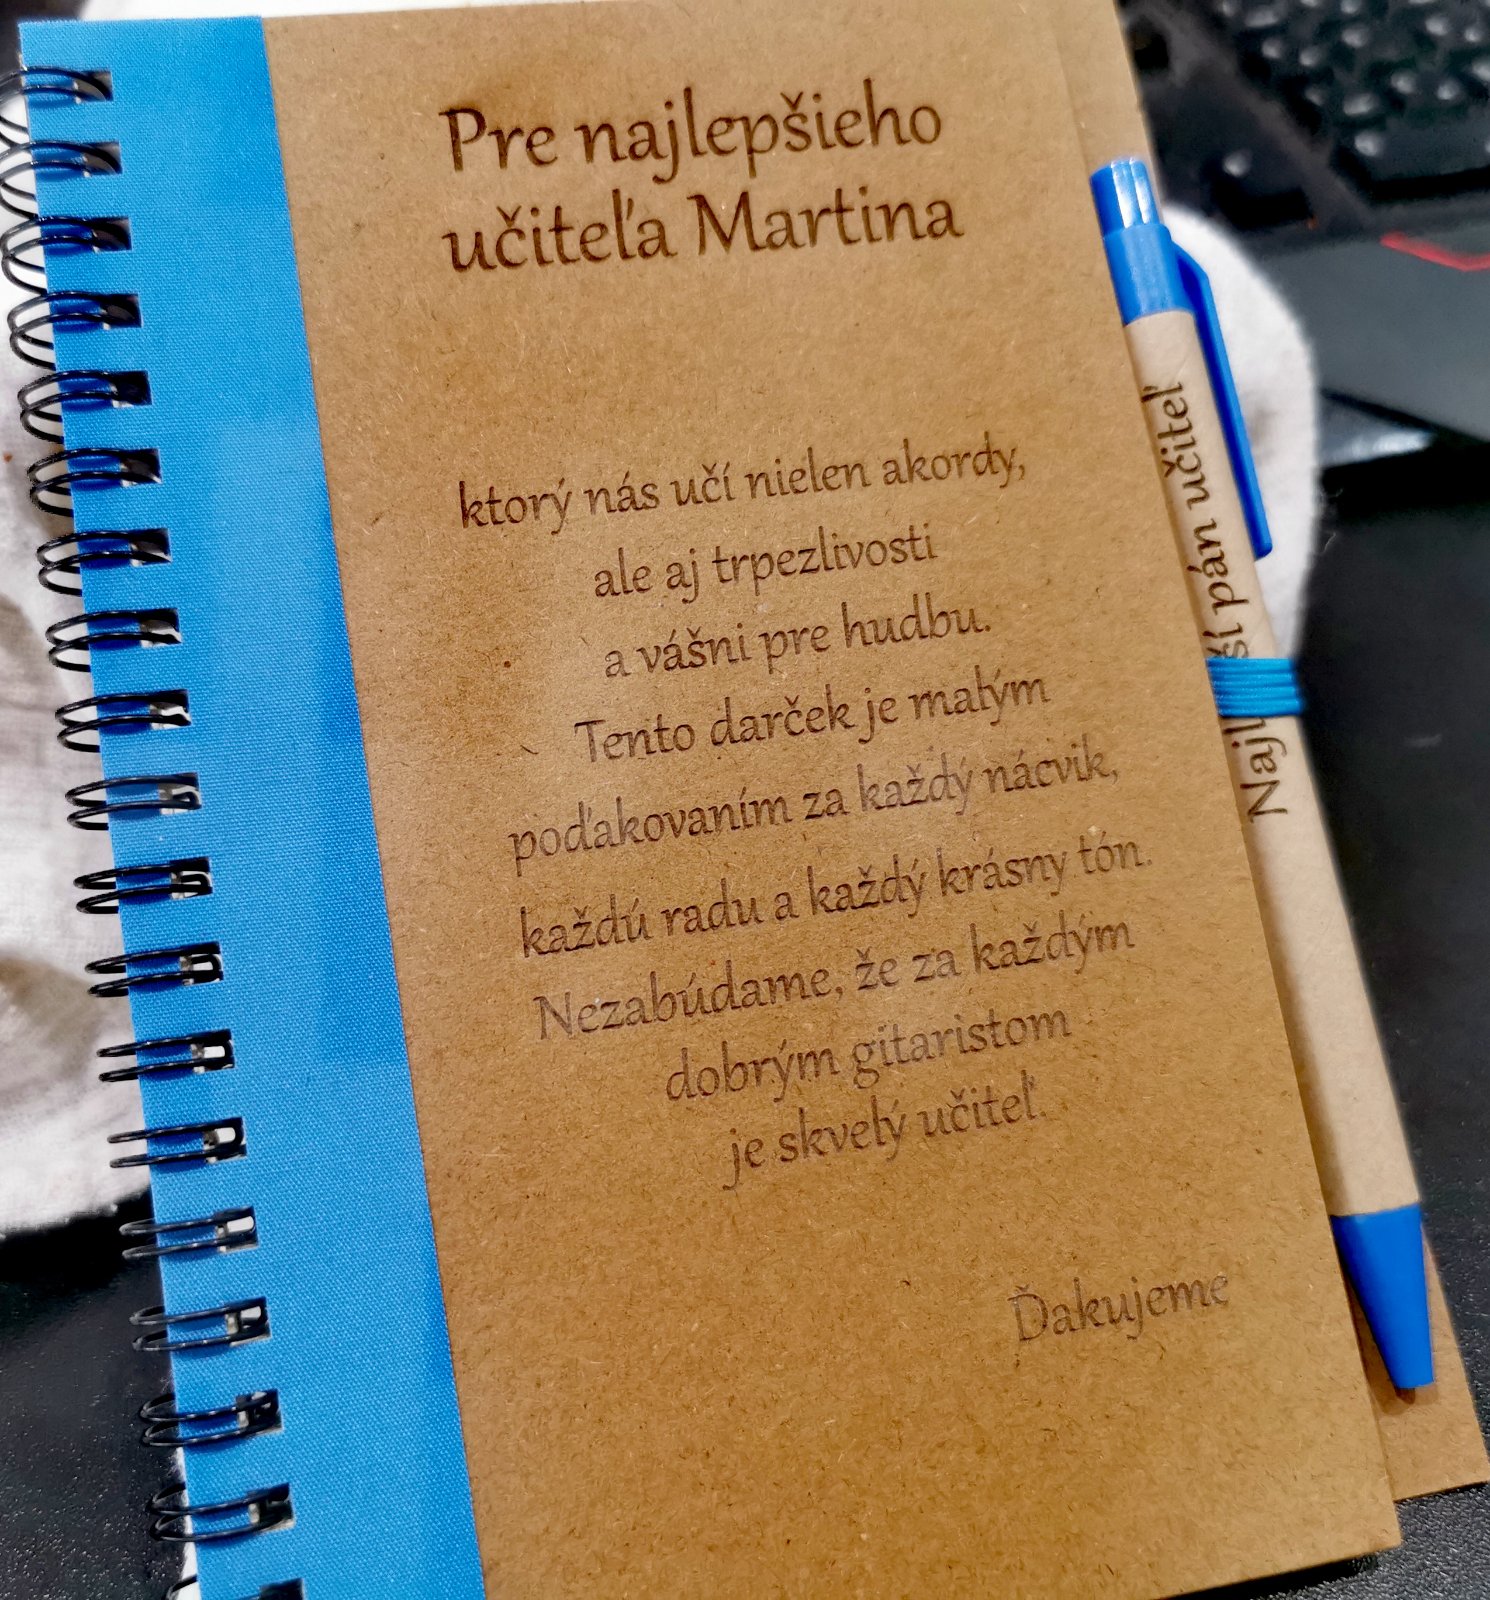 Pre najlepšieho
učiteľa Martina
ktorý nás učí nielen akordy,
ale aj trpezlivosti
a vášni pre hudbu.
Tento darček je malým
poďakovaním za každý nácvik,
každú radu a každý krásny tón.
Nezabúdame, že za každým
dobrým gitaristom
je skvelý učiteľ.
Ďakujeme
pán učiteľ